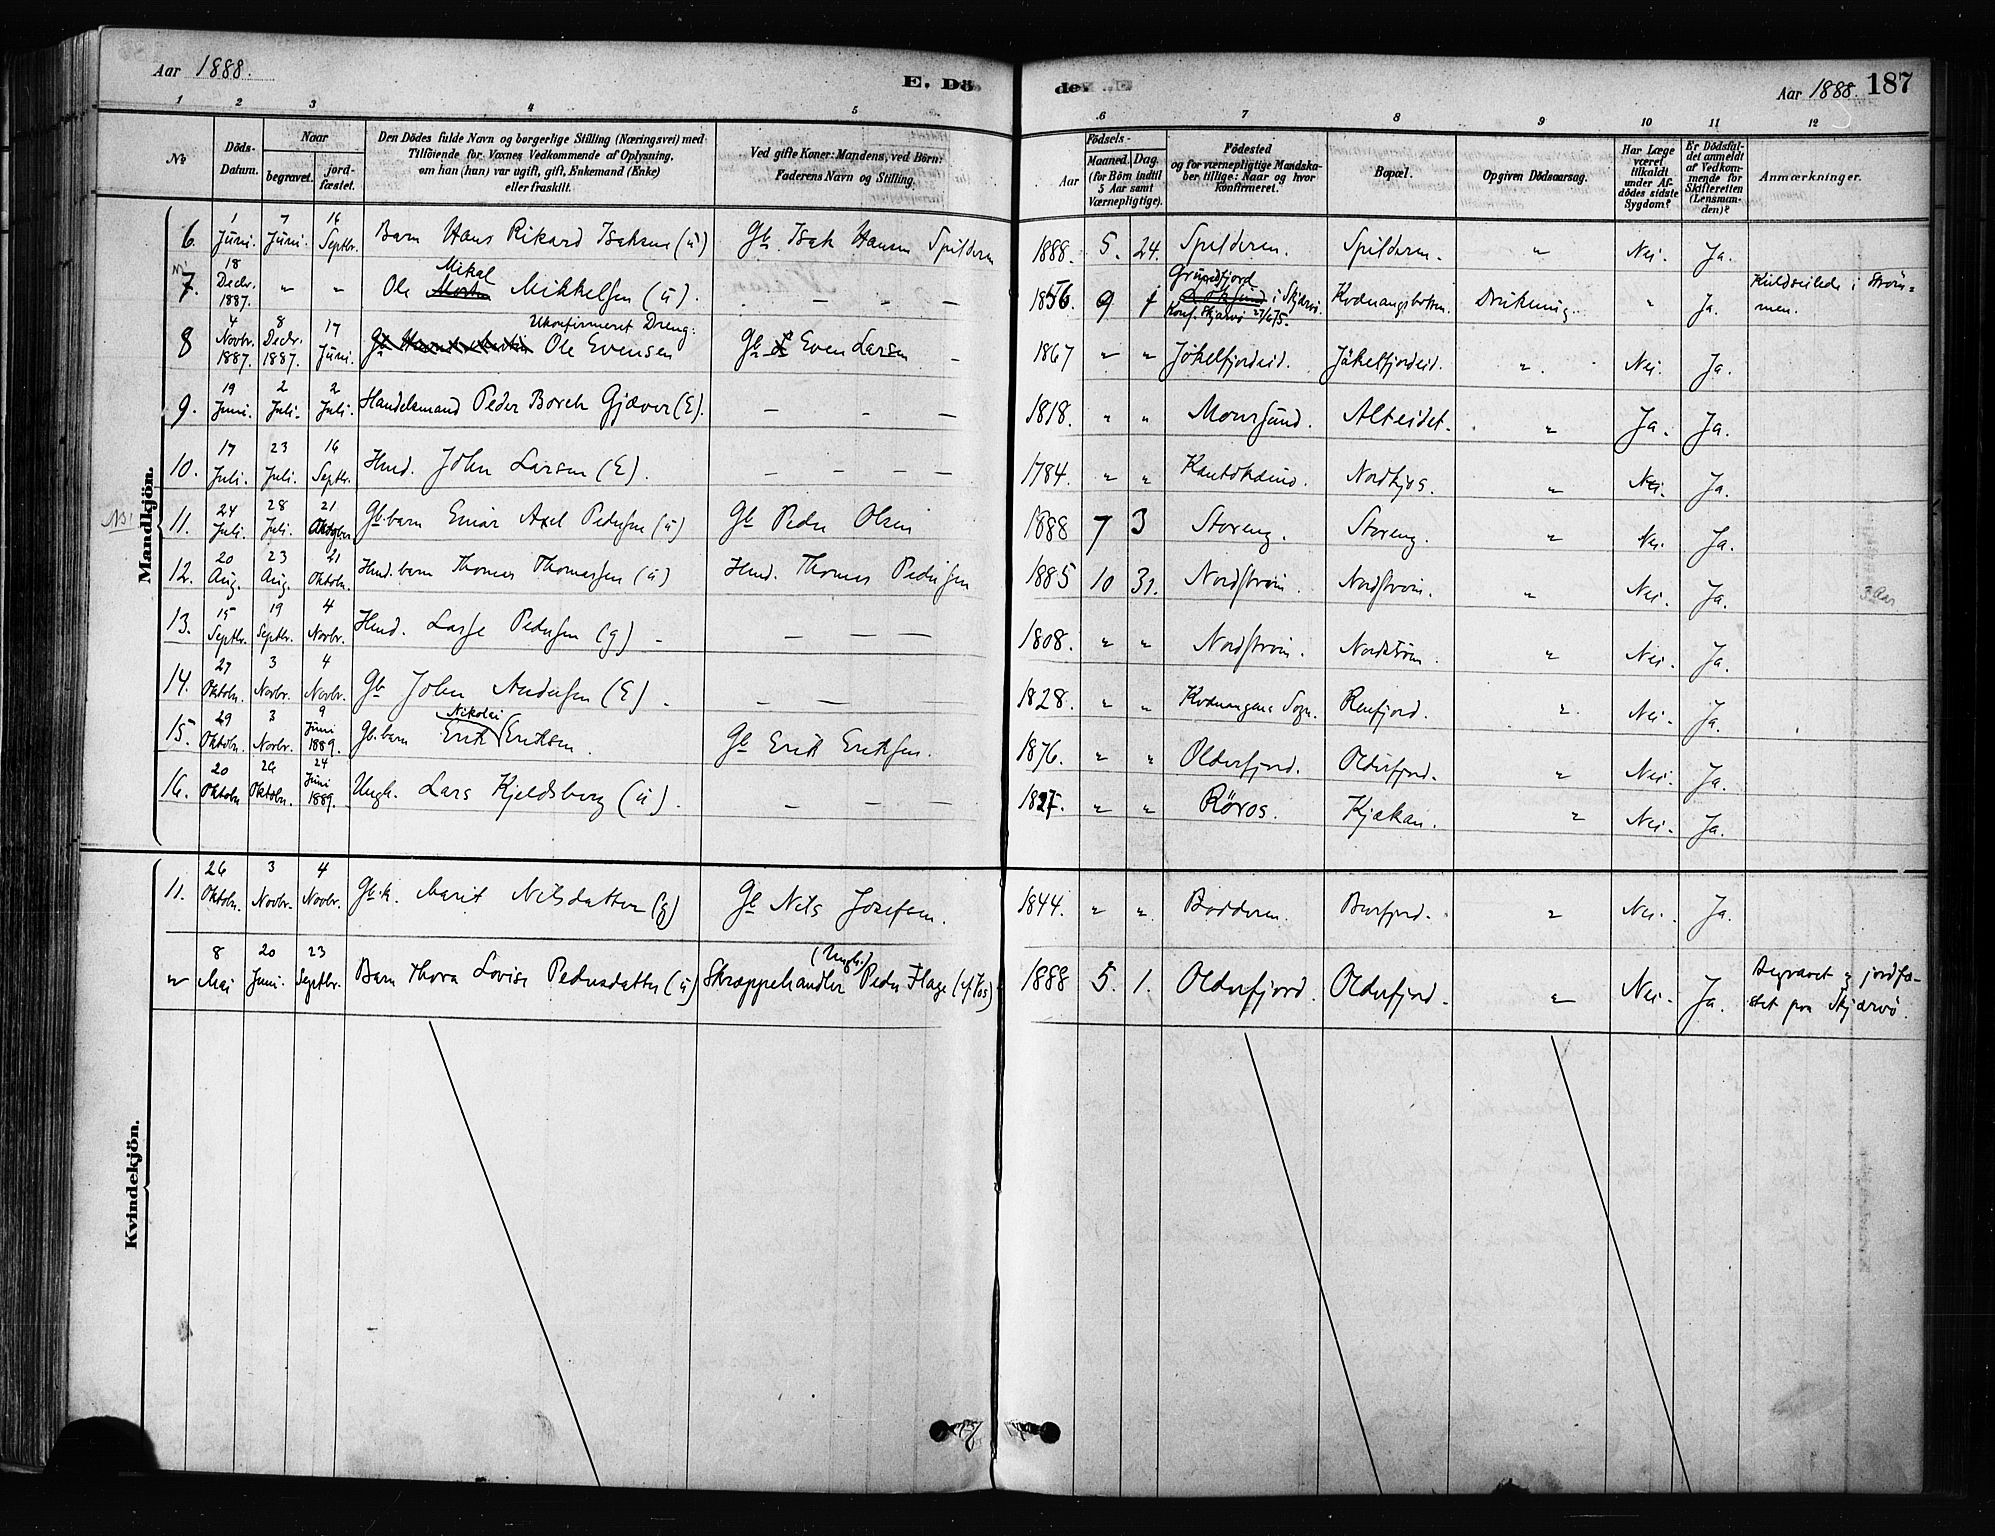 Aar 1888.
E. Döde.
Aar 1888. 187
1 2 3 4 5 6 7 8 9 10 11 12
No
Döds-Datum.
Naar
begravet.
jordfæstet.
Den Dödes fulde Navn og borgerlige Stilling (Næringsvei) med
Tilföiende for Voxnes Vedkommende af Oplysning,
om han (hun) var ugift, gift, Enkemand (Enke)
eller fraskilt.
Ved gifte Koner: Mandens, ved Börn:
Faderens Navn og Stilling.
Födsels-
Aar
Maaned. Dag.
(for Börn indtil
5 Aar samt
Værnepligtige).
Födested
og for værnepligtige Mandska-
ber tillige: Naar og hvor
konfirmeret.
Bopæl.
Opgiven Dödsaarsag.
Har Læge
været
tilkaldt
under Af-
dödes sidste
Sygdom?
Er Dödsfal-
det anmeldt
af Vedkom-
mende for
Skifteretten
(Lensman-
den)?
Anmærkninger.
Mandkjön.
6. 1 Juni. 7 Juni. 16 Septbr. Barn Hans Rikard Isaksen (u) Gb. Isak Hansen Spilderen 1888. 5. 24. Spilderen. Spilderen. " Nei. Ja.
7. 18 Decbr. 1887. " " Ole Mikal Mikkelsen (u). – – – 1856. 9 Grundfjord i Skjærvö. Konf. Skjærvö 27/6 75. Kvænangsbotten. Drukning. " Ja. Kuldseilede i Ström-
men.
8 4 Novbr. 1887. 8 Decbr. 1887. 17 Juni. Ukonfirmeret Dreng: Ole Evensen Gb Even Larsen – 1867 " " Jökelfjordeid. Jökelfjordeid. " Nei. Ja.
9. 19 Juni. 2 Juli. 2 Juli. Handelsmand Peder Borch Gjæver (E). – – – 1818. " " Moursund. Alteidet. " Ja. Ja.
10. 17 Juli. 23 Juli. 16 Septbr. Hmd. John Larsen (E). – – – 1784. " " Kautokeino. Nordkjos. " Nei. Ja.
NB!
11. 24 Juli. 28 Juli. 21 Oktober Gb. barn Einar Axel Pedersen (u) Gb Peder Olsen 1888 7 3 Storeng. Storeng. " Nei. Ja.
12. 20 Aug. 23 Aug. 21 Oktobr. Hmd. barn Thomas Thomassen (u) Hmd. Thomas Pedersen 1885 10 31. Nordström. Nordström. " Nei. Ja. 3 Aar
13. 15 Septbr. 19 Septbr. 4 Novbr. Hmd. Lasse Pedersen (g) – – – 1808. " " Nordström. Nordström. " Nei. Ja.
14. 27 Oktobr. 3 Novbr. 4 Novbr. Gb John Andersen (E). – – 1828. " " Kvænangens Sogn. Renfjord. " Nei. Ja.
15. 29 Oktobr. 3 Novbr. 9 Juni 1889. Gb. barn Erik Nikolai Eriksen. Gb Erik Eriksen. 1876. " " Olderfjord. Olderfjord. " Nei. Ja.
16. 20 Oktobr 29 Oktobr. 24 Juni 1889. Ungk. Lars Kjeldsberg (u). – – – 1827. " " Röros. Kjækan. " Nei. Ja.
Kvindekjön.
11. 26 Oktobr. 3 Novbr. 4 Novbr. Gb.k. Marit Nilsdatter (g) Gb Nils Josefsen. 1844. " " Badderen. Burfjord. " Nei. Ja.
8 Mai 20 Juni. 23 Septbr. Barn Thora Lovise Pedersdatter (u) Skræppehandler (Ungk.) Peder Flage (f. Vos) 1888 5. 1. Olderfjord. Olderfjord. " Nei. Ja. Begravet & jordfæ-
stet paa Skjærvö.